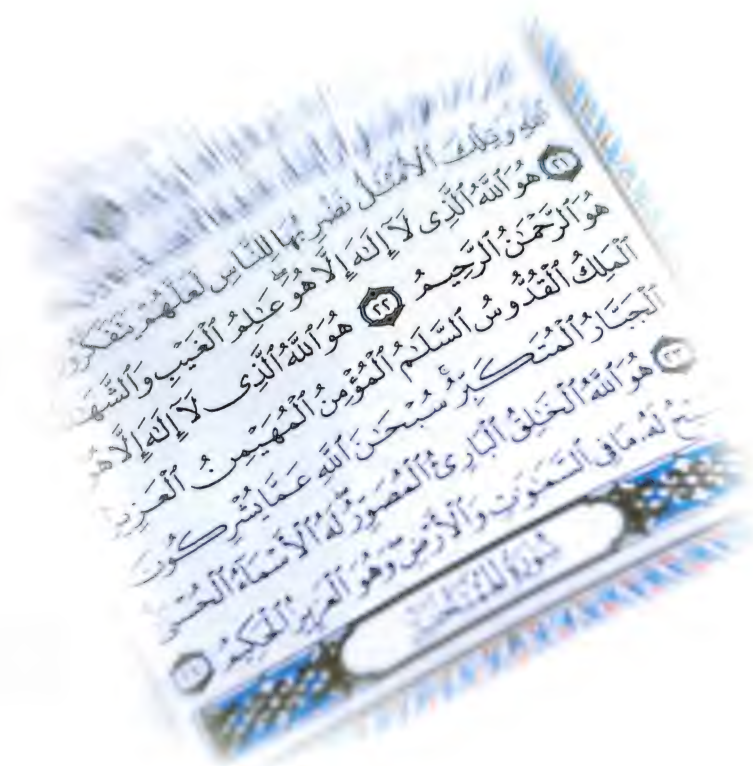 ٱللَّهِ وَتِلْكَ ٱلْأَمْثَـٰلُ نَضْرِبُهَا لِلنَّاسِ لَعَلَّهُمْ يَتَفَكَّرُونَ
٢١ هُوَ ٱللَّهُ ٱلَّذِى لَآ إِلَـٰهَ إِلَّا هُوَ ۖ عَـٰلِمُ ٱلْغَيْبِ وَٱلشَّهَـٰ
هُوَ ٱلرَّحْمَـٰنُ ٱلرَّحِيمُ ٢٢ هُوَ ٱللَّهُ ٱلَّذِى لَآ إِلَـٰهَ إِلَّا هُوَ
ٱلْمَلِكُ ٱلْقُدُّوسُ ٱلسَّلَـٰمُ ٱلْمُؤْمِنُ ٱلْمُهَيْمِنُ ٱلْعَزِيزُ
ٱلْجَبَّارُ ٱلْمُتَكَبِّرُ ۚ سُبْحَـٰنَ ٱللَّهِ عَمَّا يُشْرِكُونَ
٢٣ هُوَ ٱللَّهُ ٱلْخَـٰلِقُ ٱلْبَارِئُ ٱلْمُصَوِّرُ ۖ لَهُ ٱلْأَسْمَآءُ ٱلْحُسْنَىٰ
بِّحُ لَهُۥ مَا فِى ٱلسَّمَـٰوَٰتِ وَٱلْأَرْضِ ۖ وَهُوَ ٱلْعَزِيزُ ٱلْحَكِيمُ ٢٤
سُورَةُ ٱلْمُمْتَحَنَةِ